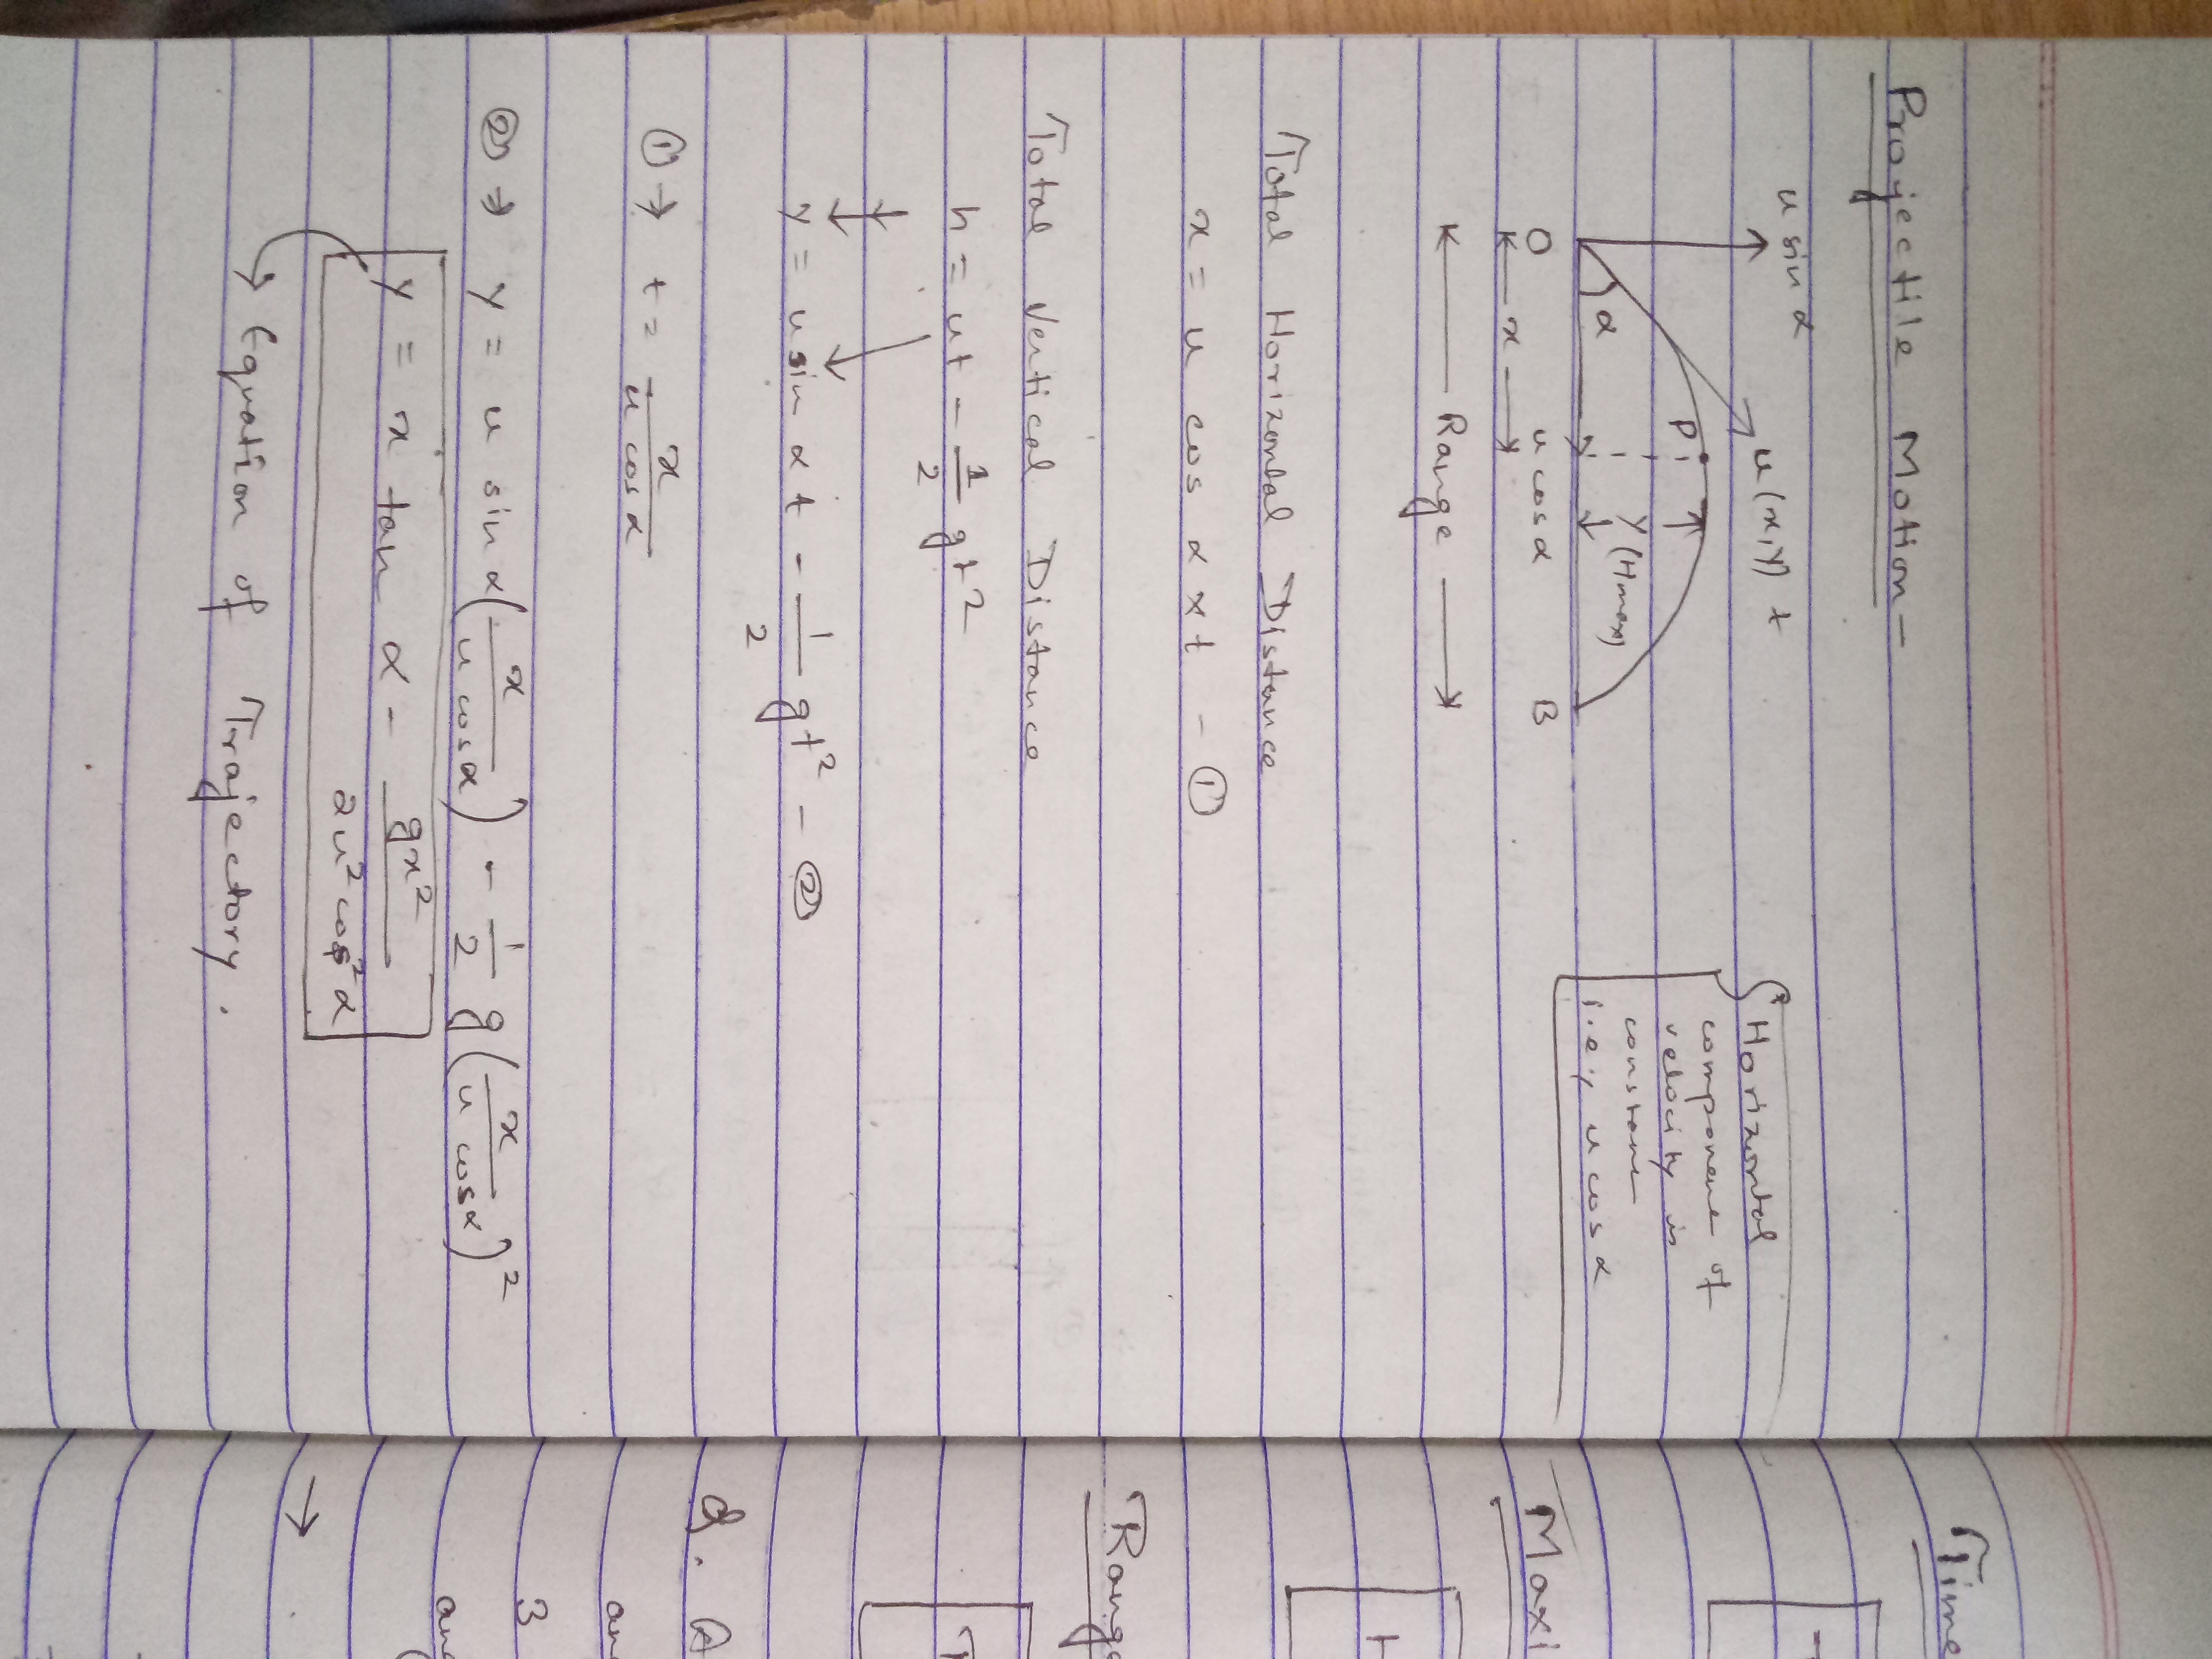 Projectile Motion-
u sin α
u (x,y) t
P
y (Hmax)
α
O u cos α B
x
Range
Horizontal
component of
velocity is
constant
i.e., u cos α
Total Horizontal Distance
x = u cos α × t - ①
Total Vertical Distance
h = ut - 1/2 gt²
y = u sin α t - 1/2 gt² - ②
① → t = x / u cos α
② → y = u sin α (x / u cos α) - 1/2 g (x / u cos α)²
y = x tan α - gx² / 2u² cos² α
→ Equation of Trajectory.
Time
Maxi
H
Range
Q. A
3
→